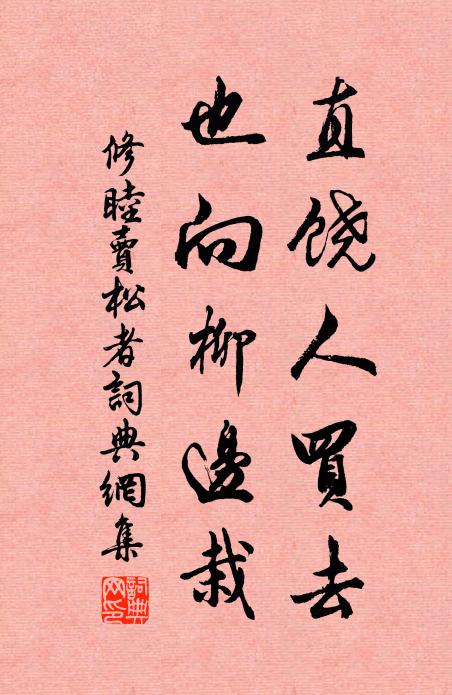 直饶人買去
也向柳邊栽
修睦賣松者詞典網集
詞典網印